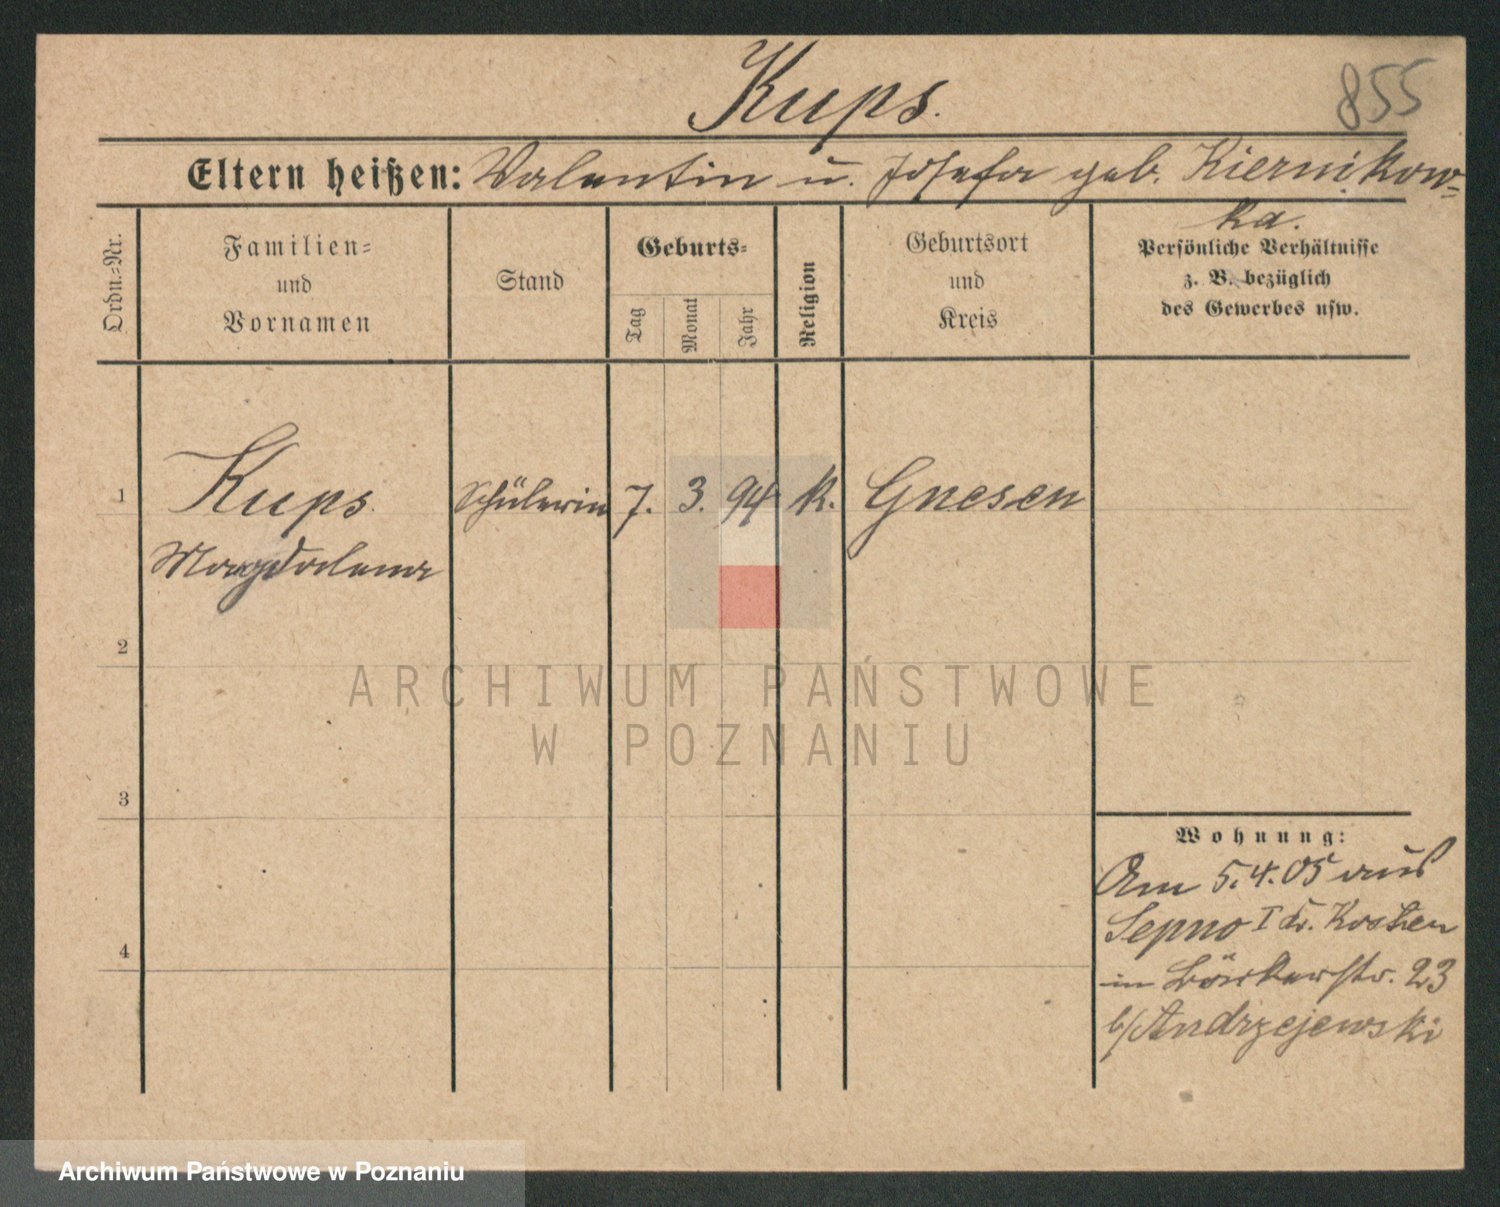 Kups.
855
Eltern heißen: Valentin u. Josefa geb. Kiernikow-
ka.
Ordn.-Nr.
Familien-
und
Vornamen
Stand
Geburts-
Tag
Monat
Jahr
Religion
Geburtsort
und
Kreis
Persönliche Verhältnisse
z. B. bezüglich
des Gewerbes usw.
1
Kups Schülerin 7. 3. 94 k. Gnesen
Magdalena
2
ARCHIWUM PAŃSTWOWE
W POZNANIU
3
4
Wohnung:
Am 5.4.05 aus
Sepno I Kr. Kosten
in Bäckerstr. 23
b/Andrzejewski
Archiwum Państwowe w Poznaniu